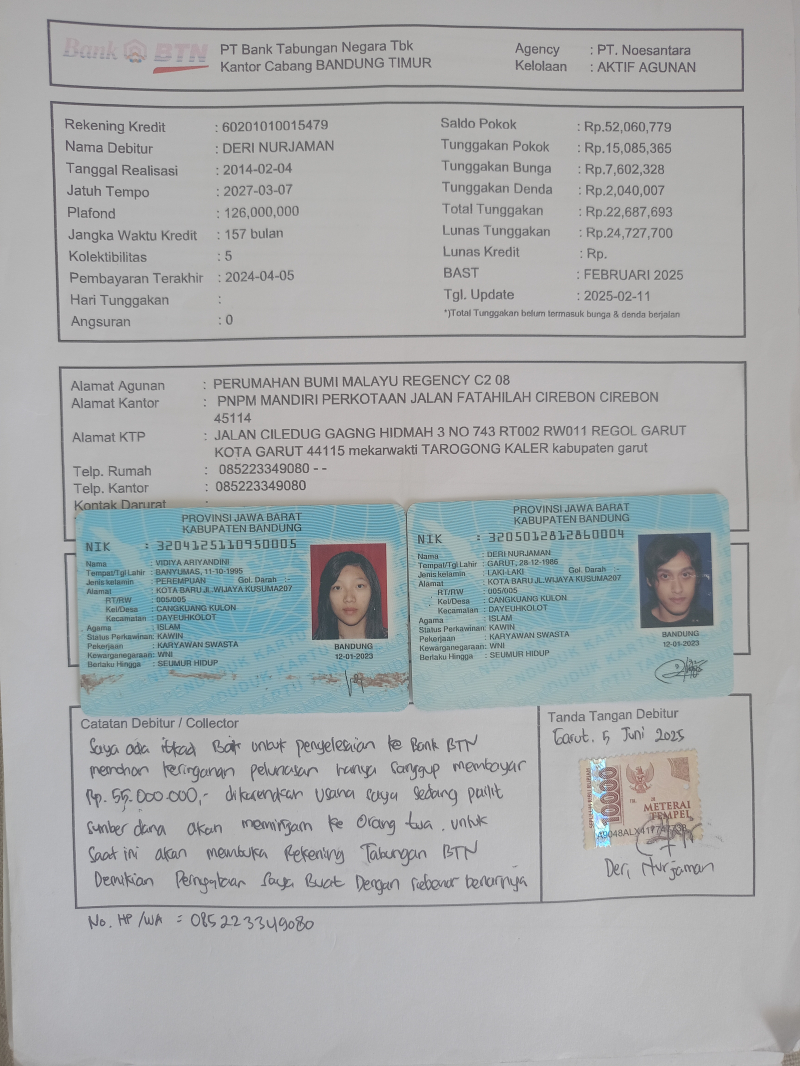 Bank BTN
PT Bank Tabungan Negara Tbk
Kantor Cabang BANDUNG TIMUR
Agency : PT. Noesantara
Kelolaan : AKTIF AGUNAN
Rekening Kredit : 60201010015479
Nama Debitur : DERI NURJAMAN
Tanggal Realisasi : 2014-02-04
Jatuh Tempo : 2027-03-07
Plafond : 126,000,000
Jangka Waktu Kredit : 157 bulan
Kolektibilitas : 5
Pembayaran Terakhir : 2024-04-05
Hari Tunggakan :
Angsuran : 0
Saldo Pokok : Rp.52,060,779
Tunggakan Pokok : Rp.15,085,365
Tunggakan Bunga : Rp.7,602,328
Tunggakan Denda : Rp.2,040,007
Total Tunggakan : Rp.22,687,693
Lunas Tunggakan : Rp.24,727,700
Lunas Kredit : Rp.
BAST : FEBRUARI 2025
Tgl. Update : 2025-02-11
*)Total Tunggakan belum termasuk bunga & denda berjalan
Alamat Agunan : PERUMAHAN BUMI MALAYU REGENCY C2 08
Alamat Kantor : PNPM MANDIRI PERKOTAAN JALAN FATAHILAH CIREBON CIREBON
45114
Alamat KTP : JALAN CILEDUG GAGNG HIDMAH 3 NO 743 RT002 RW011 REGOL GARUT
KOTA GARUT 44115 mekarwakti TAROGONG KALER kabupaten garut
Telp. Rumah : 085223349080 - -
Telp. Kantor : 085223349080
Kontak Darurat :
PROVINSI JAWA BARAT
KABUPATEN BANDUNG
NIK : 3204125110950005
Nama : VIDIYA ARIYANDINI
Tempat/Tgl Lahir : BANYUMAS, 11-10-1995
Jenis kelamin : PEREMPUAN Gol. Darah :-
Alamat : KOTA BARU JL.WIJAYA KUSUMA207
RT/RW : 005/005
Kel/Desa : CANGKUANG KULON
Kecamatan : DAYEUHKOLOT
Agama : ISLAM
Status Perkawinan: KAWIN
Pekerjaan : KARYAWAN SWASTA
Kewarganegaraan: WNI
Berlaku Hingga : SEUMUR HIDUP
BANDUNG
12-01-2023
PROVINSI JAWA BARAT
KABUPATEN BANDUNG
NIK : 3205012812860004
Nama : DERI NURJAMAN
Tempat/Tgl Lahir : GARUT, 28-12-1986
Jenis kelamin : LAKI-LAKI Gol. Darah :-
Alamat : KOTA BARU JL.WIJAYA KUSUMA207
RT/RW : 005/005
Kel/Desa : CANGKUANG KULON
Kecamatan : DAYEUHKOLOT
Agama : ISLAM
Status Perkawinan: KAWIN
Pekerjaan : KARYAWAN SWASTA
Kewarganegaraan: WNI
Berlaku Hingga : SEUMUR HIDUP
BANDUNG
12-01-2023
Catatan Debitur / Collector
Saya ada itikad Baik untuk penyelesaian ke Bank BTN
memohon keringanan pelunasan hanya sanggup membayar
Rp. 55.000.000,- dikarenakan usaha saya sedang pailit
sumber dana akan meminjam ke orang tua. untuk
saat ini akan membuka Rekening Tabungan BTN
Demikian Pernyataan saya Buat Dengan sebenar benarnya
Tanda Tangan Debitur
Garut, 5 Juni 2025
10000
METERAI
TEMPEL
Deri Nurjaman
No. HP/WA = 085223349080